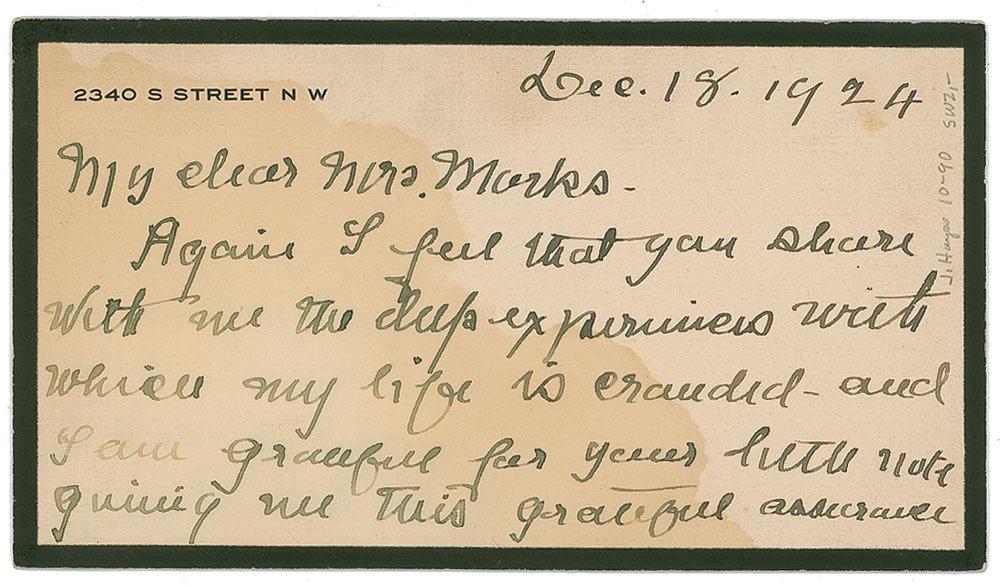 2340 S STREET N W
Dec. 18. 1924
My dear Mrs. Marks -
Again I feel that you share
with me the deep experiences with
which my life is crowded - and
I am grateful for your little note
giving me this grateful assurance
J. Hayes 10-90